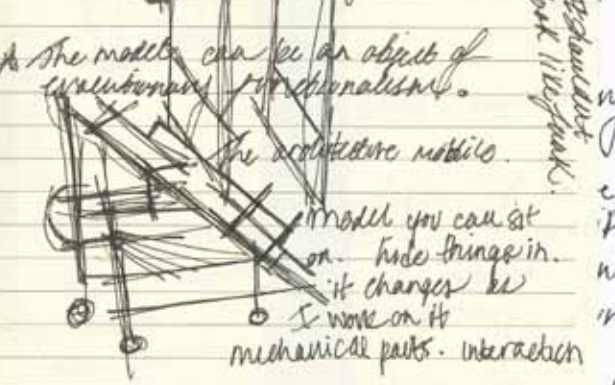 The model can be an object of
evolutionary functionalism.
The architecture mobile.
Model you can sit
on. hide things in.
it changes as
I work on it
mechanical parts. interaction
look like junk.